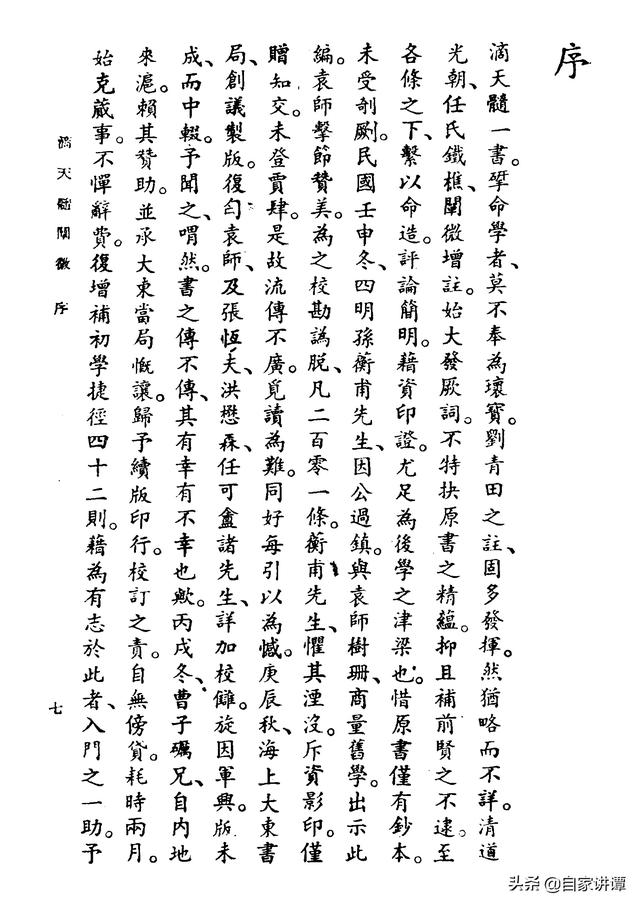 序
滴天髓一書。研命學者、莫不奉為瓌寶。劉青田之註、固多發揮。然猶略而不詳。清道
光朝、任氏鐵樵、闡微增註。始大發厥詞。不特抉原書之精蘊。抑且補前賢之不逮。至
各條之下、繫以命造。評論簡明。藉資印證。尤足為後學之津梁也。惜原書僅有鈔本。
未受剞劂。民國壬申冬、四明孫蘅甫先生、因公過鎮。與袁師樹珊、商量舊學。出示此
編。袁師擊節贊美。為之校勘譌脫、凡二百零一條。蘅甫先生、懼其湮沒。斥資影印。僅
贈知交。未登賈肆。是故流傳不廣。覓讀為難。同好每引以為憾。庚辰秋、海上大東書
局、創議製版。復匄袁師、及張恆夫、洪懋森、任可盦諸先生、詳加校讎。旋因軍興。版未
成、而中輟。予聞之、喟然。書之傳不傳、其有幸有不幸也歟。丙戌冬、曹子礪兄、自內地
來滬。賴其贊助。並承大東當局慨讓。歸予續版印行。校訂之責。自無傍貸。耗時兩月。
始克蕆事。不憚辭費。復增補初學捷徑四十二則。藉為有志於此者、入門之一助。予
滴天髓闡微 序
七
头条 @自家讲谭